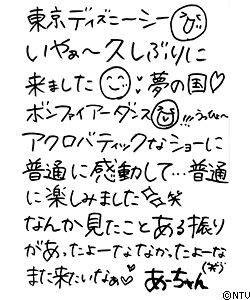 東京ディズニーシー
いやぁ〜久しぶりに
来ました 夢の国♡
ボンファイアーダンス!!!うっひょ〜
アクロバティックなショーに
普通に感動して…普通
に楽しみました 笑
なんか見たことある振り
があったよーななかったよーな
また来たいなぁ♡ あ〜ちゃん(笑)
©NTU